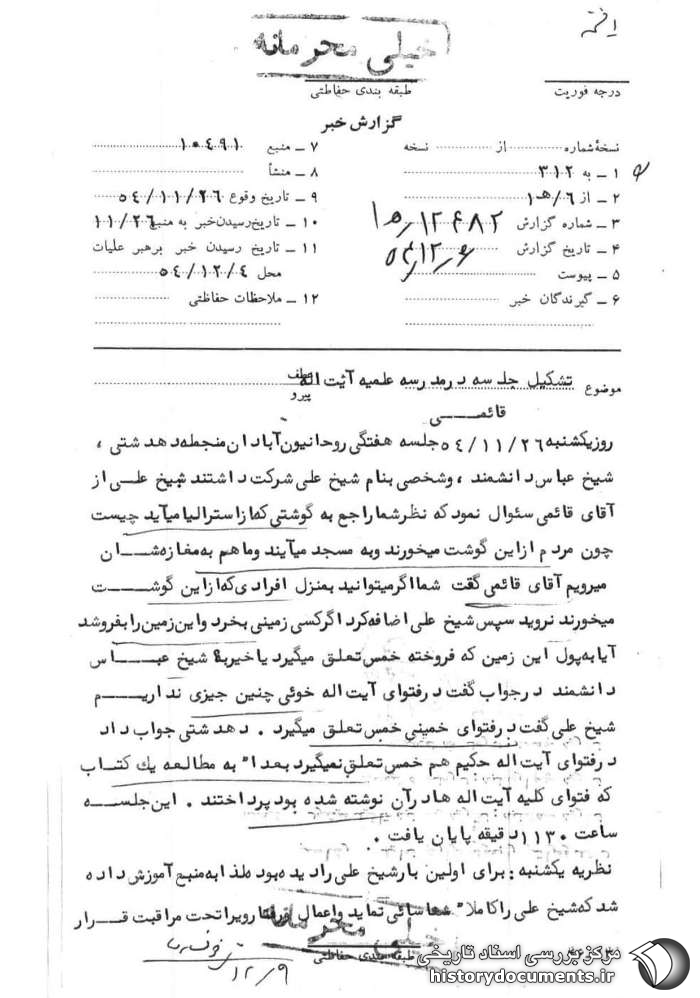 خیلی محرمانه
درجه فوریت
طبقه بندی حفاظتی
گزارش خبر
نسخهٔ شماره از نسخه
۱ ـ به ۳۱۲
۲ ـ از ۱ه‍/۶
۳ ـ شماره گزارش ۱۲۶۸۲/۱ه‍
۴ ـ تاریخ گزارش ۵۴/۱۲/۶
۵ ـ پیوست
۶ ـ گیرندگان خبر
۷ ـ منبع ۱۰۴۹۱
۸ ـ منشأ
۹ ـ تاریخ وقوع ۵۴/۱۱/۲۶
۱۰ ـ تاریخ رسیدن خبر به منبع ۱۱/۲۶
۱۱ ـ تاریخ رسیدن خبر برهبر عملیات
محل ۵۴/۱۲/۴
۱۲ ـ ملاحظات حفاظتی
موضوع تشکیل جلسه در مدرسه علمیه آئت اله
عطف
پیرو
قائمی
روز یکشنبه ۵۴/۱۱/۲۶ جلسه هفتگی روحانیون آبادان منجمله دهدشتی ،
شیخ عباس دانشمند ، وشخصی بنام شیخ علی شرکت داشتند شیخ علی از
آقای قائمی سئوال نمود که نظر شما راجع به گوشتی که از استرالیا میآید چیست
چون مردم از این گوشت میخورند وبه مسجد میآیند وماهم به مغازه شان
میرویم آقای قائمی گفت شما اگر میتوانید بمنزل افرادی که از این گوشت
میخورند نروید سپس شیخ علی اضافه کرد اگر کسی زمینی بخرد واین زمین را بفروشد
آیا به پول این زمین که فروخته خمس تعلق میگیرد یا خیر شیخ عباس
دانشمند در جواب گفت در فتوای آیت اله خوئی چنین چیزی نداریم
شیخ علی گفت در فتوای خمینی خمس تعلق میگیرد . دهدشتی جواب داد
در فتوای آیت اله حکیم هم خمس تعلق نمیگیرد بعدا" به مطالعه یك کتاب
که فتوای کلیه آیت اله ها در آن نوشته شده بود پرداختند . این جلسه
ساعت ۱۱۳۰ دقیقه پایان یافت .
نظریه یکشنبه : برای اولین بار شیخ علی را دیده بود لذا به منبع آموزش داده
شد که شیخ علی را کاملا" شناسائی نماید واعمال ورفتار ویرا تحت مراقبت قرار
خیلی محرمانه
طبقه بندی حفاظتی
۱۲/۹
مرکز بررسی اسناد تاریخی
historydocuments.ir